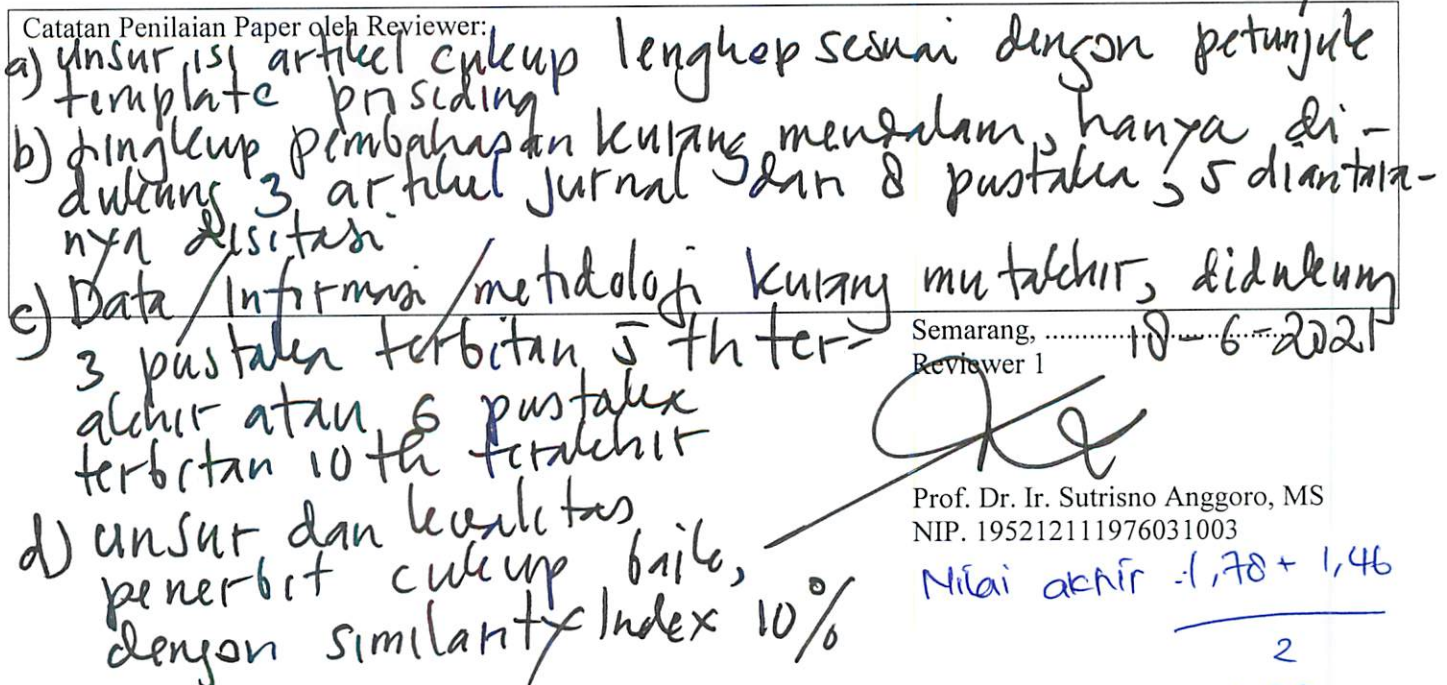 Catatan Penilaian Paper oleh Reviewer:
a) Unsur isi artikel cukup lengkap sesuai dengan petunjuk
template prosiding
b) Lingkup pembahasan kurang mendalam, hanya di-
dukung 3 artikel jurnal dari 8 pustaka, 5 diantara-
nya disitasi
c) Data/Informasi/metodologi kurang mutakhir, didukung
3 pustaka terbitan 5 th ter-
akhir atau 6 pustaka
terbitan 10 th terakhir
d) unsur dan kualitas
penerbit cukup baik,
dengan similarity Index 10%
Semarang, .................... 18-6-2021
Reviewer 1
Prof. Dr. Ir. Sutrisno Anggoro, MS
NIP. 195212111976031003
Nilai akhir : 1,78 + 1,46
2